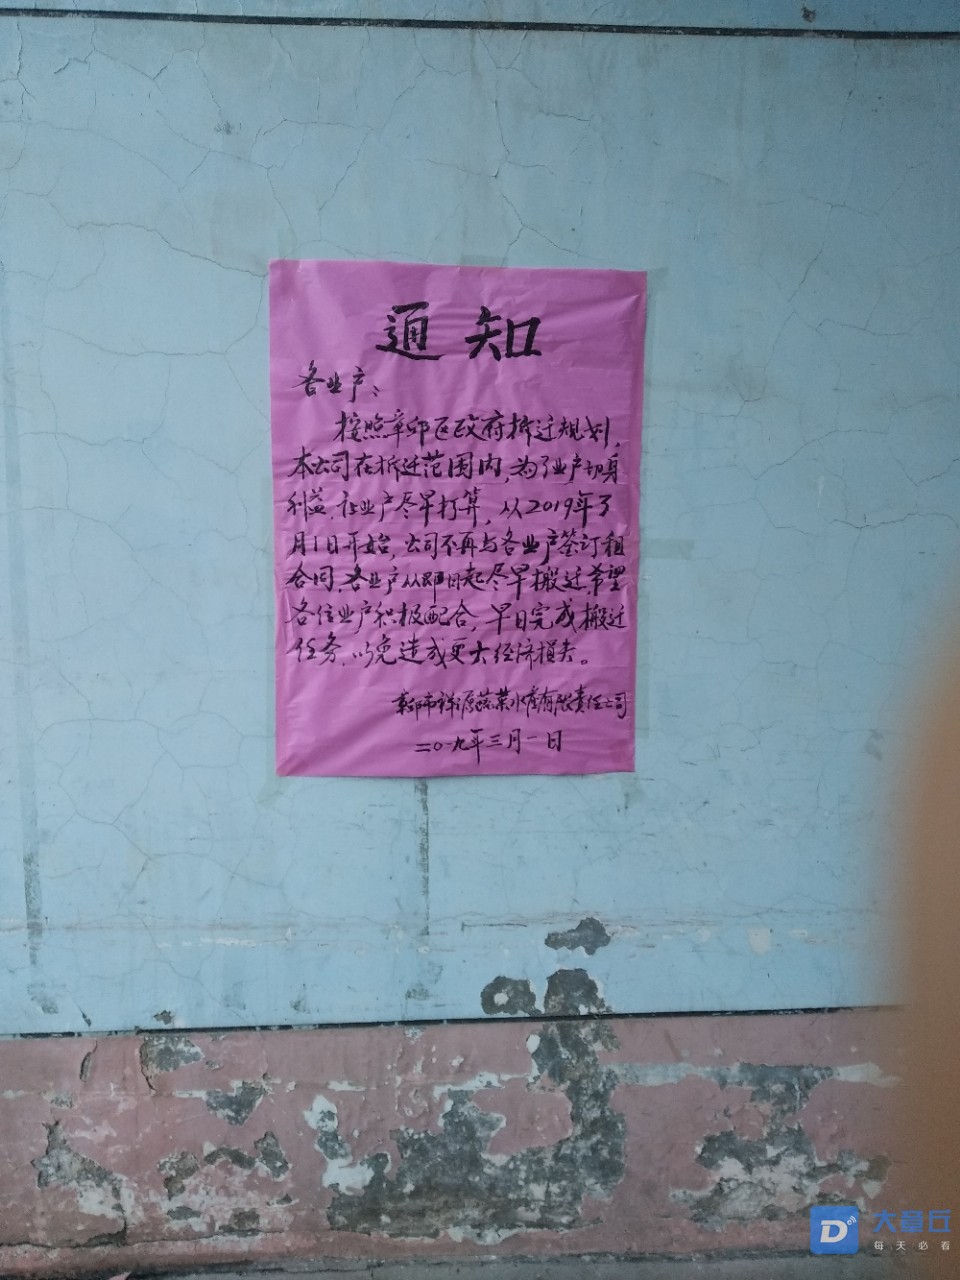 通知
各业户:
按照章邱区政府拆迁规划,
本公司在拆迁范围内,为了业户切身
利益,让业户尽早打算,从2019年3
月1日开始,公司不再与各业户签订租
合同,各业户从即日起尽早搬迁,希望
各位业户积极配合,早日完成搬迁
任务,以免造成更大经济损失。
章邱市祥源蔬菜水产有限责任公司
二〇一九年三月一日
大章丘
每天必看